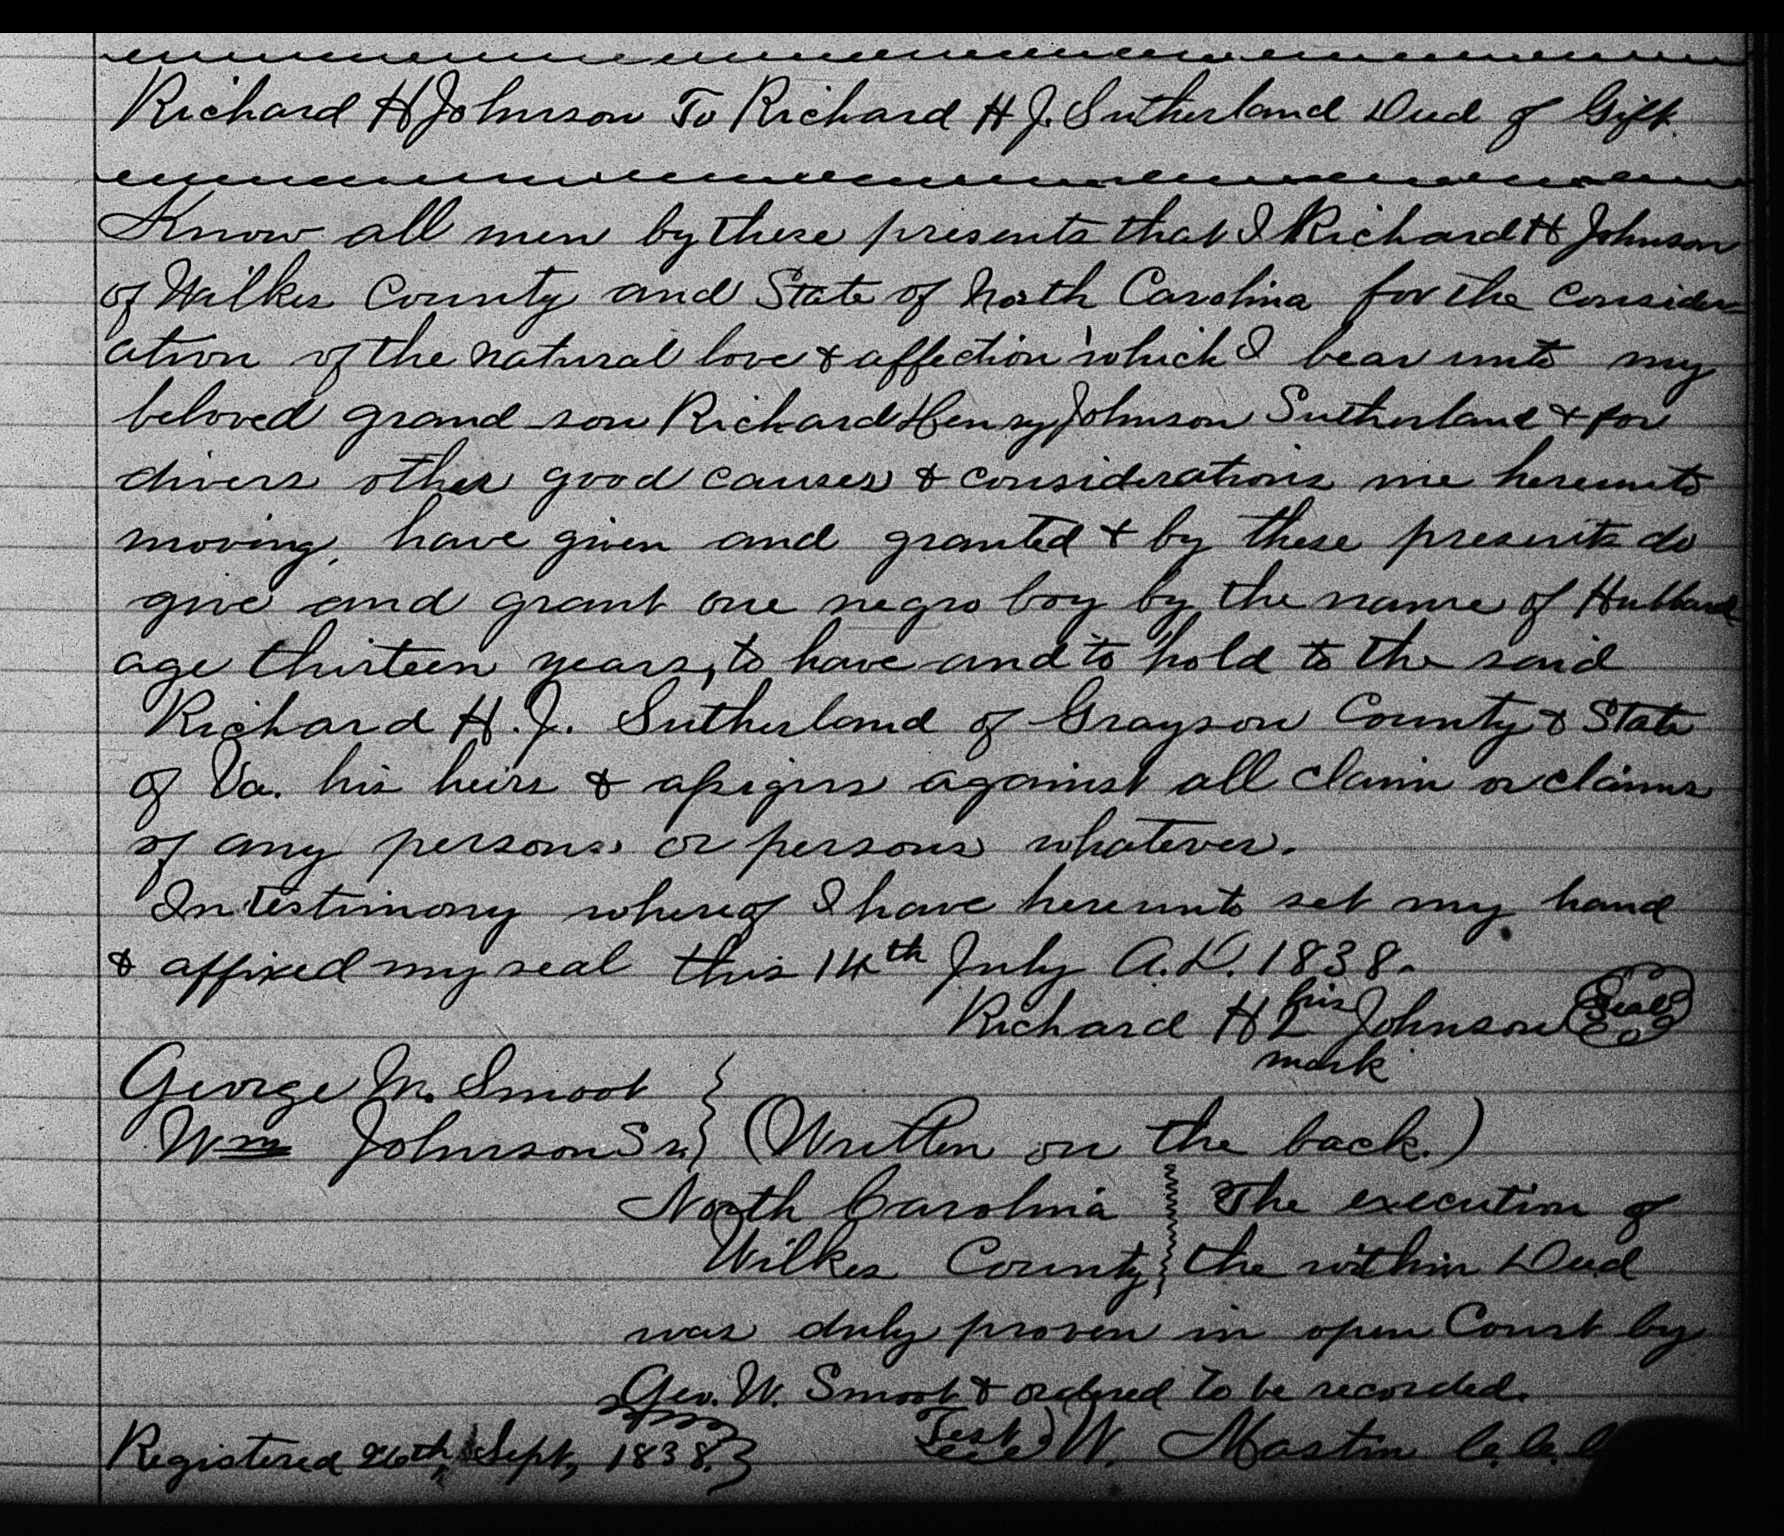 Richard H Johnson To Richard H J. Sutherland Deed of Gift.
Know all men by these presents that I Richard H Johnson
of Wilkes County and State of North Carolina for the consider-
ation of the natural love & affection which I bear unto my
beloved grand son Richard Henry Johnson Sutherland & for
divers other good causes & considerations me hereunto
moving, have given and granted & by these presents do
give and grant one negro boy by the name of Hubbard
age thirteen years, to have and to hold to the said
Richard H. J. Sutherland of Grayson County & State
of Va. his heirs & assigns against all claim or claims
of any persons or persons whatever.
In testimony whereof I have hereunto set my hand
& affixed my seal this 14th July A.D. 1838.
Richard H his Johnson Seal
mark
George M. Smoot
Wm Johnson Sr. (Written on the back.)
North Carolina The execution of
Wilkes County the within Deed
was duly proven in open Court by
Geo. W. Smoot & ordered to be recorded.
Registered 26th Sept, 1838. Test W. Mastin C.C.